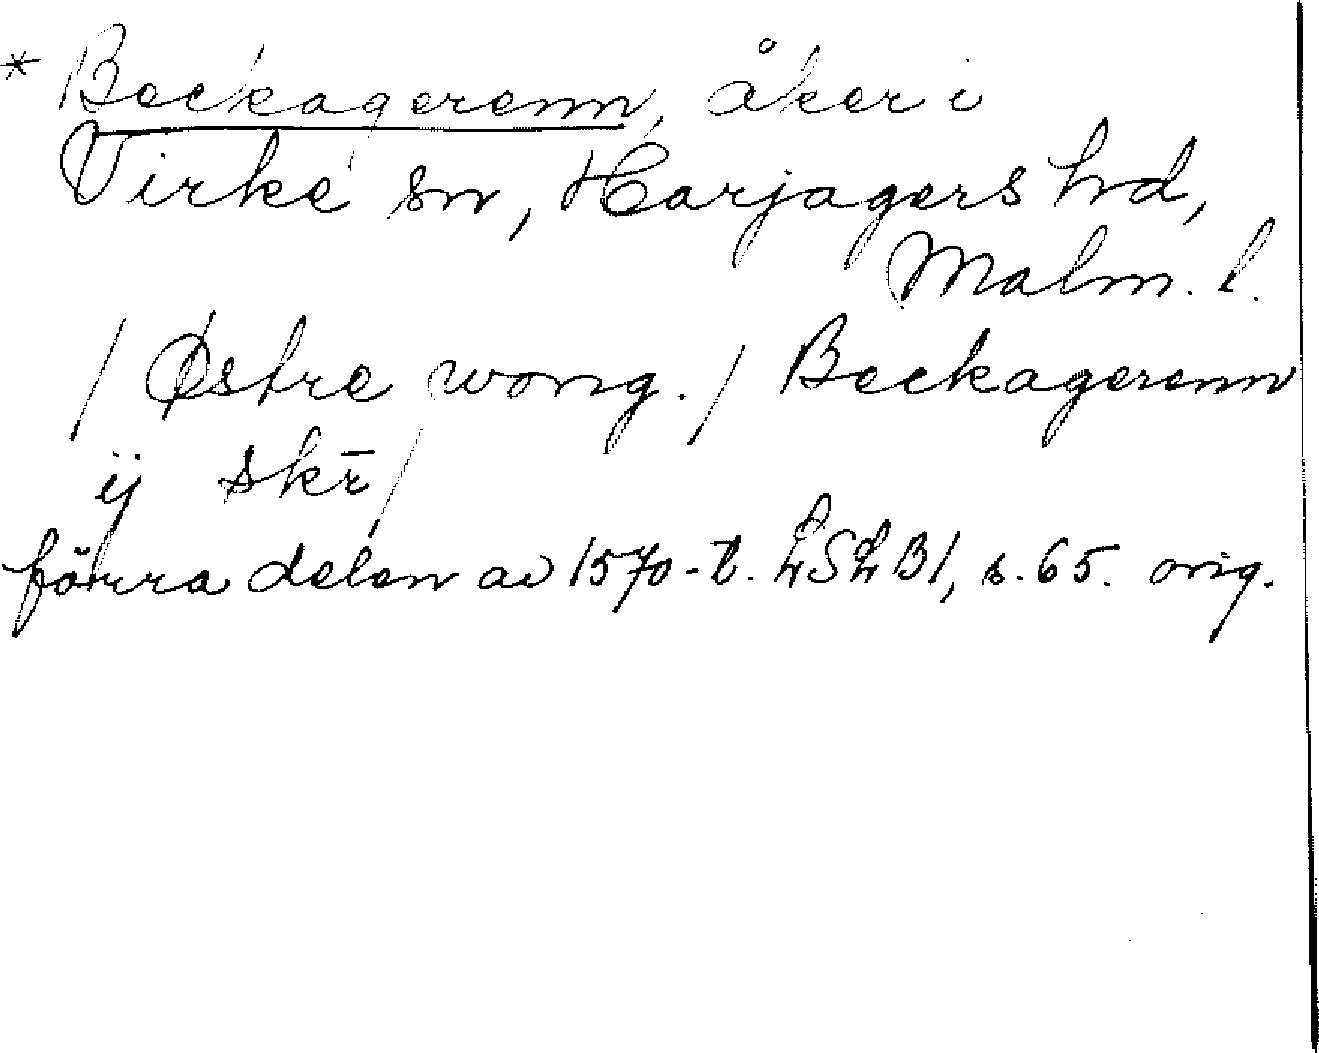 * Beckagerenn, åker i
Virke sn, Harjagers hd,
Malm. l.
/ Østre wong. / Beckagerenn
ij skr̄ /
förra delen av 1570-t. LSLB1, s. 65. orig.